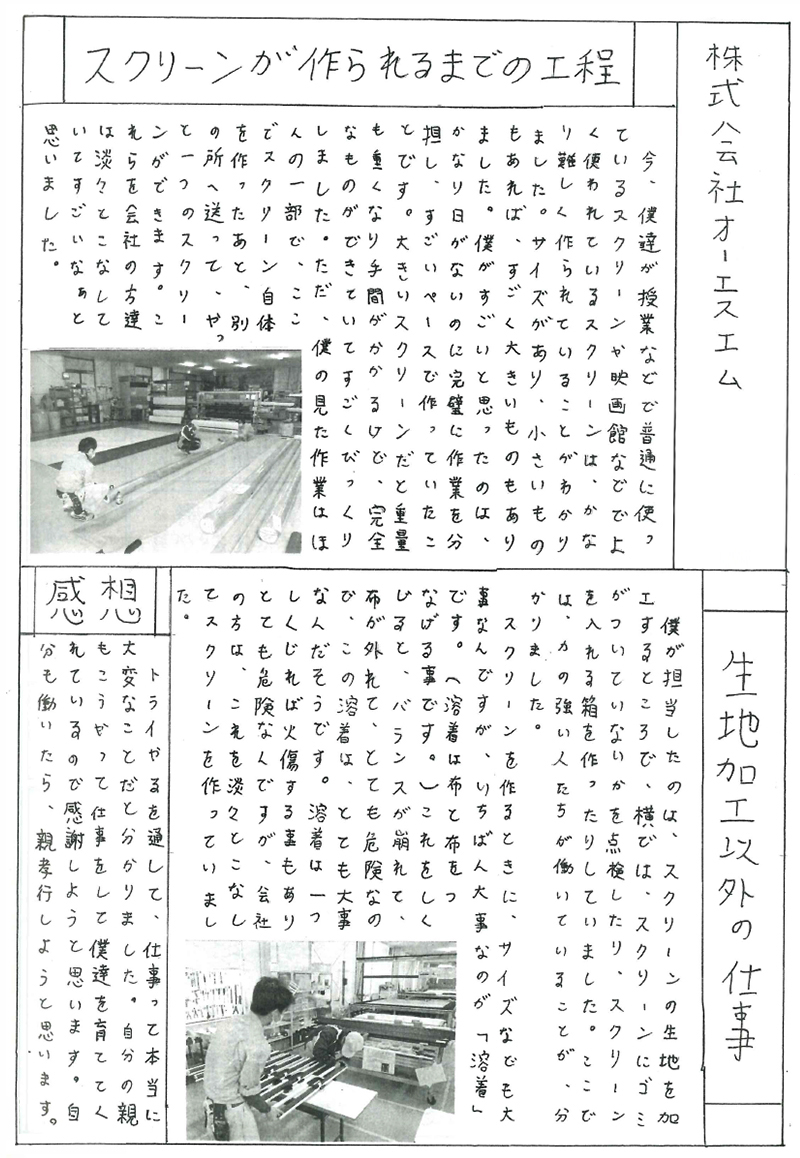 株式会社オーエスエム
スクリーンが作られるまでの工程
今、僕達が授業などで普通に使っ
ているスクリーンや映画館などでよ
く使われているスクリーンは、かな
り難しく作られていることがわかり
ました。サイズがあり、小さいもの
もあれば、すごく大きいものもあり
ました。僕がすごいと思ったのは、
かなり日がないのに完璧に作業を分
担し、すごいペースで作っていたこ
とです。大きいスクリーンだと重量
も重くなり手間がかかるけど、完全
なものができていてすごくびっくり
しました。ただ、僕の見た作業はほ
んの一部で、ここ
でスクリーン自体
を作ったあと、別
の所へ送って、やっ
と一つのスクリー
ンができます。こ
れらを会社の方達
は淡々とこなして
いてすごいなぁと
思いました。
生地加工以外の仕事
僕が担当したのは、スクリーンの生地を加
工するところで、横では、スクリーンにゴミ
がついていないかを点検したり、スクリーン
を入れる箱を作ったりしていました。ここで
は、力の強い人たちが働いていることが、分
かりました。
スクリーンを作るときに、サイズなども大
事なんですが、いちばん大事なのが「溶着」
です。(溶着は布と布をつ
なげる事です。)これをしく
じると、バランスが崩れて、
布が外れて、とても危険なの
で、この溶着は、とても大事
なんだそうです。溶着は一つ
しくじれば火傷する事もあり
とても危険なんですが、会社
の方は、これを淡々とこなし
てスクリーンを作っていまし
た。
感想
トライやるを通して、仕事って本当に
大変なことだと分かりました。自分の親
もこうやって仕事をして僕達を育ててく
れているので感謝しようと思います。自
分も働いたら、親孝行しようと思います。